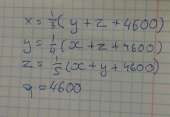 x = 1/3 (y + z + 4600)
y = 1/4 (x + z + 4600)
z = 1/5 (x + y + 4600)
q = 4600